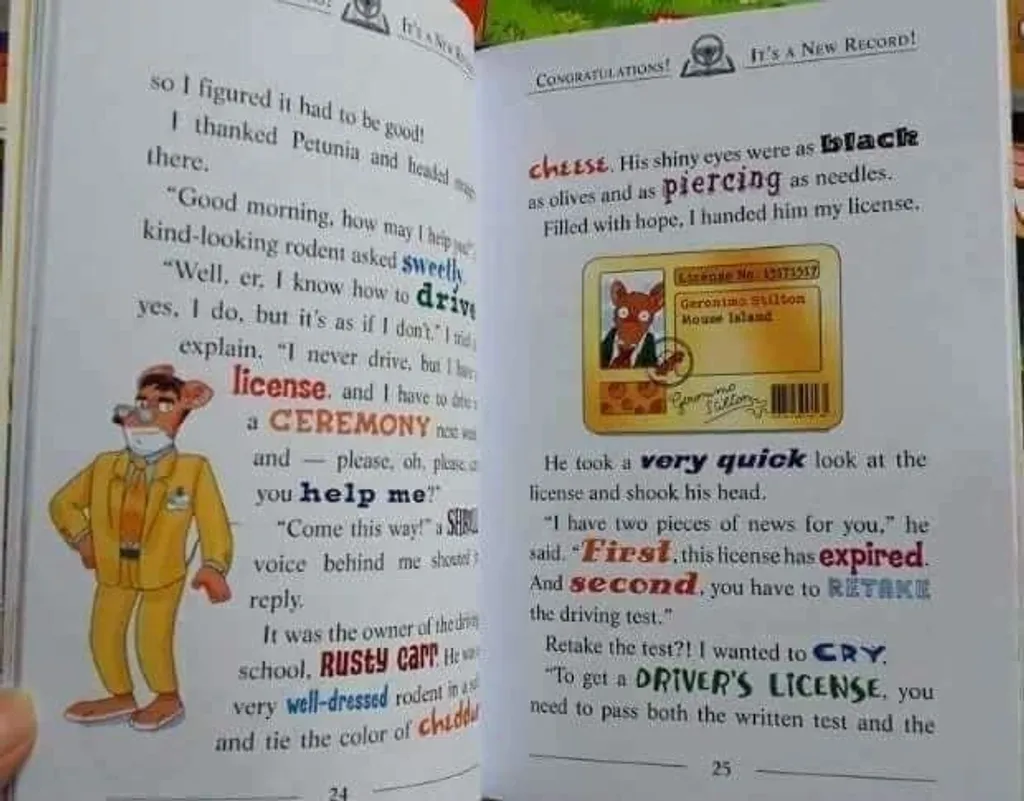 IT'S A NEW
so I figured it had to be good!
I thanked Petunia and headed
there.
"Good morning, how may I help
kind-looking rodent asked sweetly.
"Well, er, I know how to drive
yes, I do, but it's as if I don't." I
explain. "I never drive, but I have
license, and I have to
a CEREMONY next
and — please, oh, please,
you help me?"
"Come this way!" a
voice behind me shouted
reply.
It was the owner of the driving
school, RUSTY CARR. He was
very well-dressed rodent in a
and tie the color of cheddar
24
CONGRATULATIONS! IT'S A NEW RECORD!
cheese. His shiny eyes were as black
as olives and as piercing as needles.
Filled with hope, I handed him my license.
License No.
Geronimo Stilton
Mouse Island
Geronimo
Stilton
He took a very quick look at the
license and shook his head.
"I have two pieces of news for you," he
said. "First, this license has expired.
And second, you have to RETAKE
the driving test."
Retake the test?! I wanted to CRY.
"To get a DRIVER'S LICENSE, you
need to pass both the written test and the
25